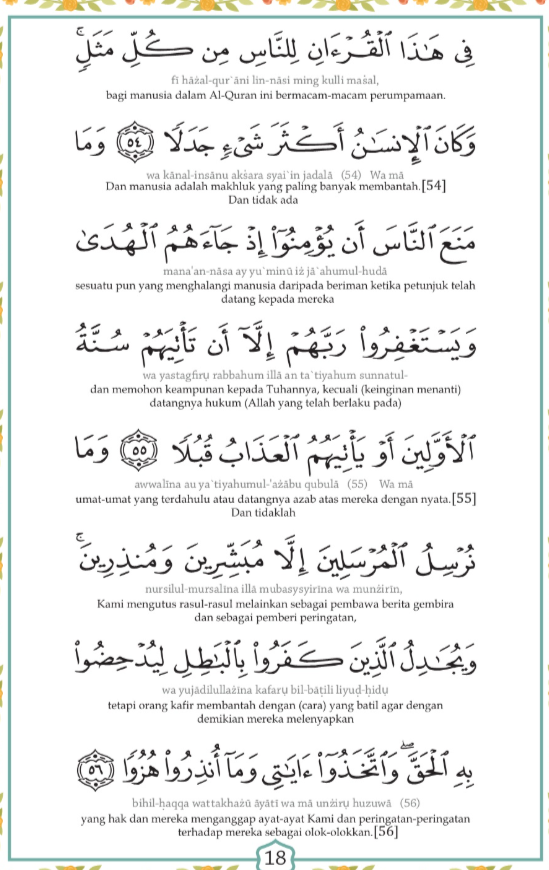 فِى هَـٰذَا ٱلْقُرْءَانِ لِلنَّاسِ مِن كُلِّ مَثَلٍ ۚ
fī hāżal-qur`āni lin-nāsi ming kulli maṡal,
bagi manusia dalam Al-Quran ini bermacam-macam perumpamaan.
وَكَانَ ٱلْإِنسَـٰنُ أَكْثَرَ شَىْءٍ جَدَلًا ٥٤ وَمَا
wa kānal-insānu akṡara syai`in jadalā (54) Wa mā
Dan manusia adalah makhluk yang paling banyak membantah.[54]
Dan tidak ada
مَنَعَ ٱلنَّاسَ أَن يُؤْمِنُوٓا۟ إِذْ جَآءَهُمُ ٱلْهُدَىٰ
mana'an-nāsa ay yu`minū iż jā`ahumul-hudā
sesuatu pun yang menghalangi manusia daripada beriman ketika petunjuk telah
datang kepada mereka
وَيَسْتَغْفِرُوا۟ رَبَّهُمْ إِلَّآ أَن تَأْتِيَهُمْ سُنَّةُ
wa yastagfirụ rabbahum illā an ta`tiyahum sunnatul-
dan memohon keampunan kepada Tuhannya, kecuali (keinginan menanti)
datangnya hukum (Allah yang telah berlaku pada)
ٱلْأَوَّلِينَ أَوْ يَأْتِيَهُمُ ٱلْعَذَابُ قُبُلًا ٥٥ وَمَا
awwalīna au ya`tiyahumul-'ażābu qubulā (55) Wa mā
umat-umat yang terdahulu atau datangnya azab atas mereka dengan nyata.[55]
Dan tidaklah
نُرْسِلُ ٱلْمُرْسَلِينَ إِلَّا مُبَشِّرِينَ وَمُنذِرِينَ ۚ
nursilul-mursalīna illā mubasysyirīna wa munżirīn,
Kami mengutus rasul-rasul melainkan sebagai pembawa berita gembira
dan sebagai pemberi peringatan,
وَيُجَـٰدِلُ ٱلَّذِينَ كَفَرُوا۟ بِٱلْبَـٰطِلِ لِيُدْحِضُوا۟
wa yujādilullażīna kafarụ bil-bāṭili liyud-ḥiḍụ
tetapi orang kafir membantah dengan (cara) yang batil agar dengan
demikian mereka melenyapkan
بِهِ ٱلْحَقَّ ۖ وَٱتَّخَذُوٓا۟ ءَايَـٰتِى وَمَآ أُنذِرُوا۟ هُزُوًا ٥٦
bihil-ḥaqqa wattakhażū āyātī wa mā unżirụ huzuwā (56)
yang hak dan mereka menganggap ayat-ayat Kami dan peringatan-peringatan
terhadap mereka sebagai olok-olokkan.[56]
18